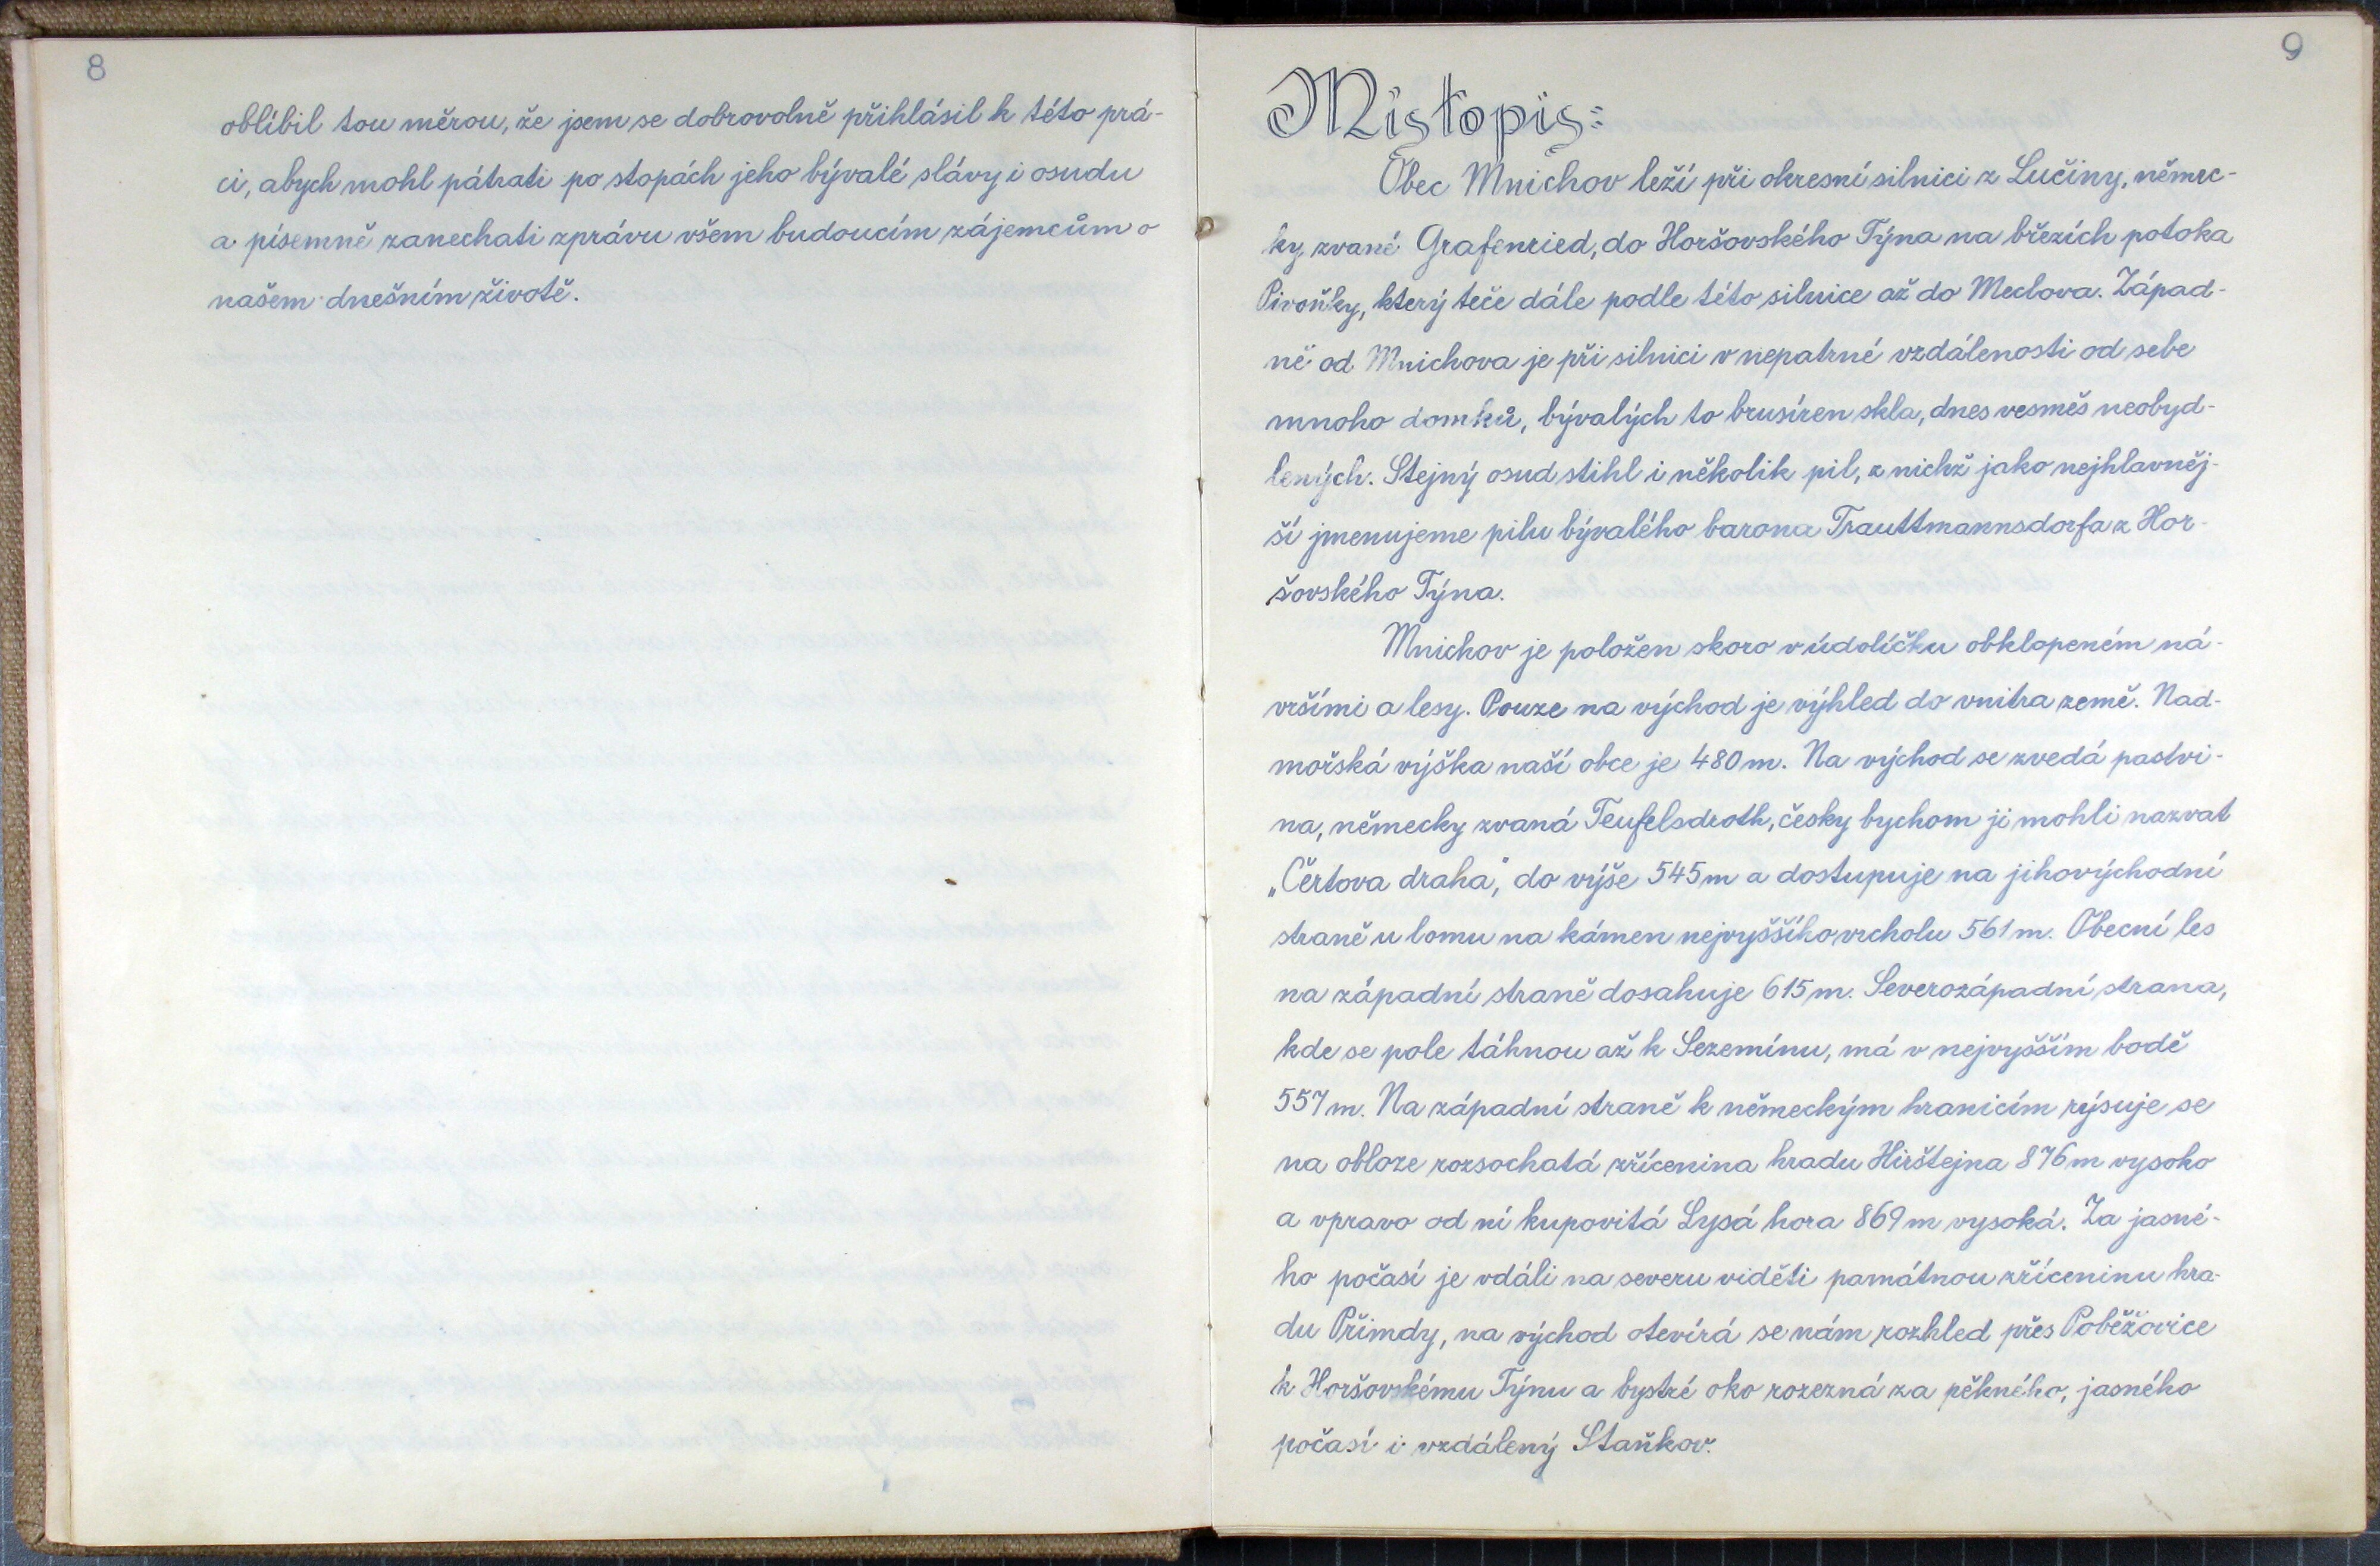 8
oblíbil tou měrou, že jsem se dobrovolně přihlásil k této prá-
ci, abych mohl pátrati po stopách jeho bývalé slávy i osudu
a písemně zanechati zprávu všem budoucím zájemcům o
našem dnešním životě.
9
Místopis:
Obec Mnichov leží při okresní silnici z Lučiny, němec-
ky zvané Grafenried, do Horšovského Týna na březích potoka
Pivoňky, který teče dále podle této silnice až do Meclova. Západ-
ně od Mnichova je při silnici v nepatrné vzdálenosti od sebe
mnoho domků, bývalých to brusíren skla, dnes vesměs neobyd-
lených. Stejný osud stihl i několik pil, z nichž jako nejhlavněj-
ší jmenujeme pilu bývalého barona Trauttmannsdorfa z Hor-
šovského Týna.
Mnichov je položen skoro v údolíčku obklopeném ná-
vršími a lesy. Pouze na východ je výhled do vnitra země. Nad-
mořská výška naší obce je 480 m. Na východ se zvedá pastvi-
na, německy zvaná Teufelsdroth, česky bychom ji mohli nazvat
„Čertova draha", do výše 545 m a dostupuje na jihovýchodní
straně u lomu na kámen nejvyššího vrcholu 561 m. Obecní les
na západní straně dosahuje 615 m. Severozápadní strana,
kde se pole táhnou až k Sezemínu, má v nejvyšším bodě
557 m. Na západní straně k německým hranicím rýsuje se
na obloze rozsochatá zřícenina hradu Hirštejna 876 m vysoko
a vpravo od ní kupovitá Lysá hora 869 m vysoká. Za jasné-
ho počasí je vdáli na severu viděti památnou zříceninu hra-
du Přimdy, na východ otevírá se nám rozhled přes Poběžovice
k Horšovskému Týnu a bystré oko rozezná za pěkného, jasného
počasí i vzdálený Staňkov.